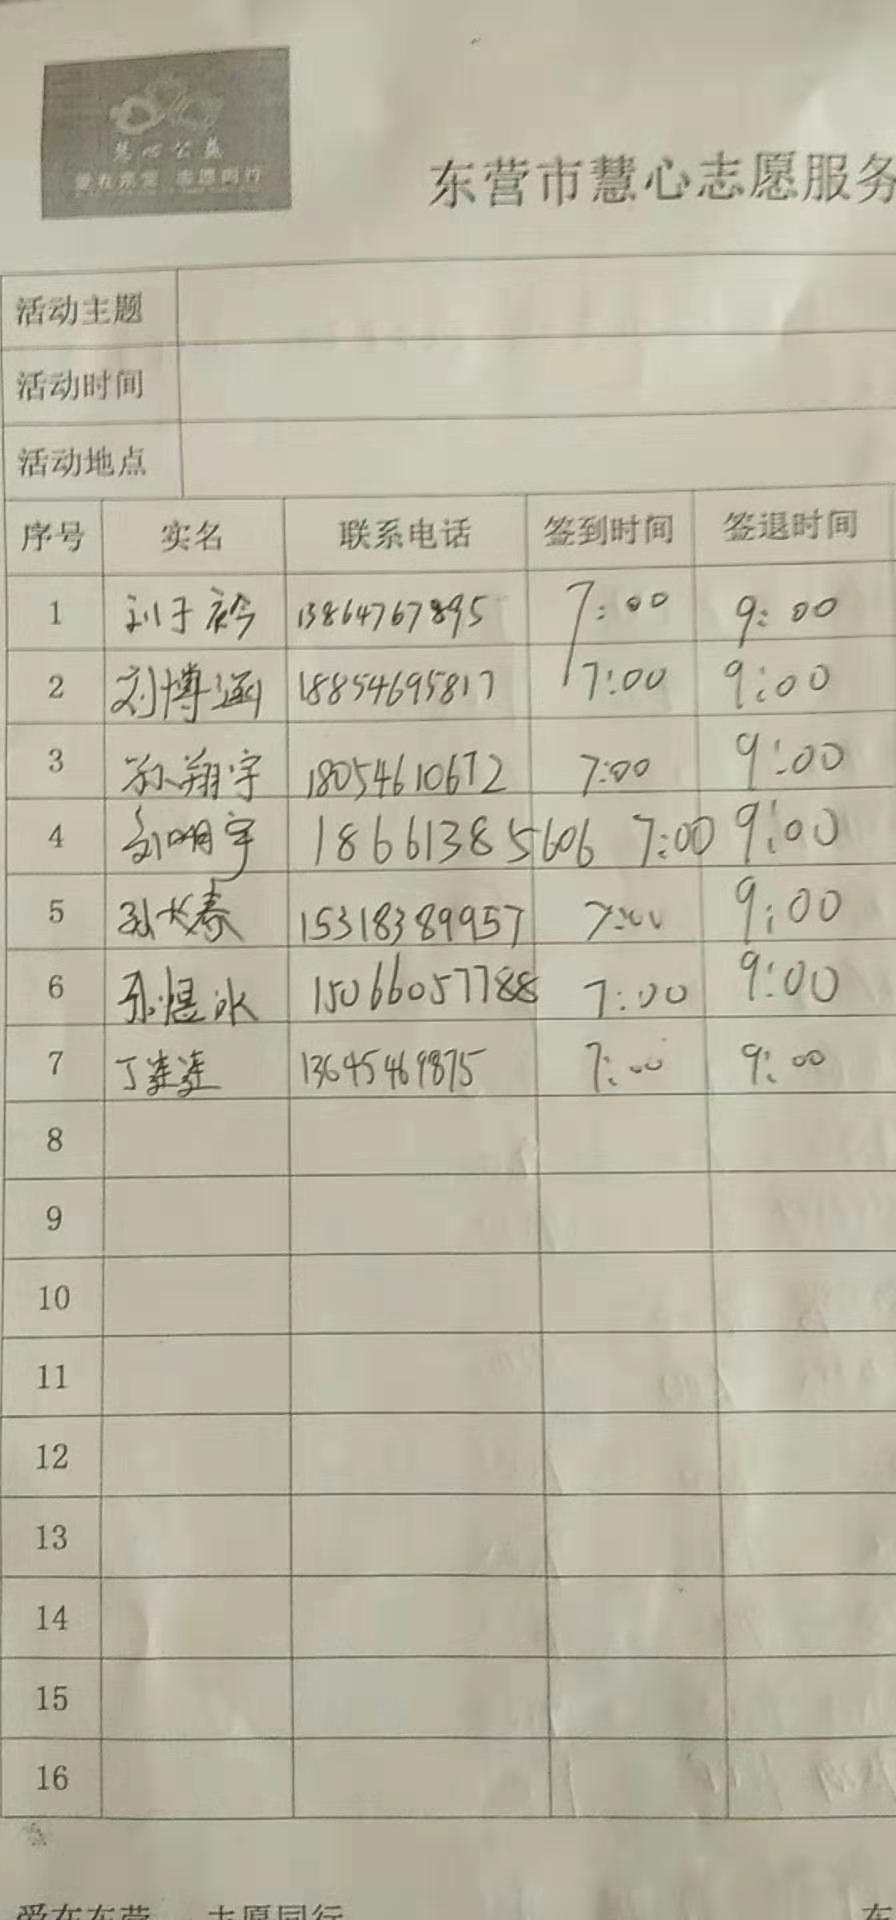 慧心公益
爱在东营 志愿同行
东营市慧心志愿服务
活动主题
活动时间
活动地点
序号 实名 联系电话 签到时间 签退时间
1 刘于衿 13864767895 7:00 9:00
2 刘博涵 18854695817 7:00 9:00
3 孙翔宇 18054610672 7:00 9:00
4 刘明宇 18661385606 7:00 9:00
5 孙长春 15318389957 7:00 9:00
6 孙煜冰 15066057788 7:00 9:00
7 丁 13645469875 7:00 9:00
8
9
10
11
12
13
14
15
16
爱在东营 志愿同行 东